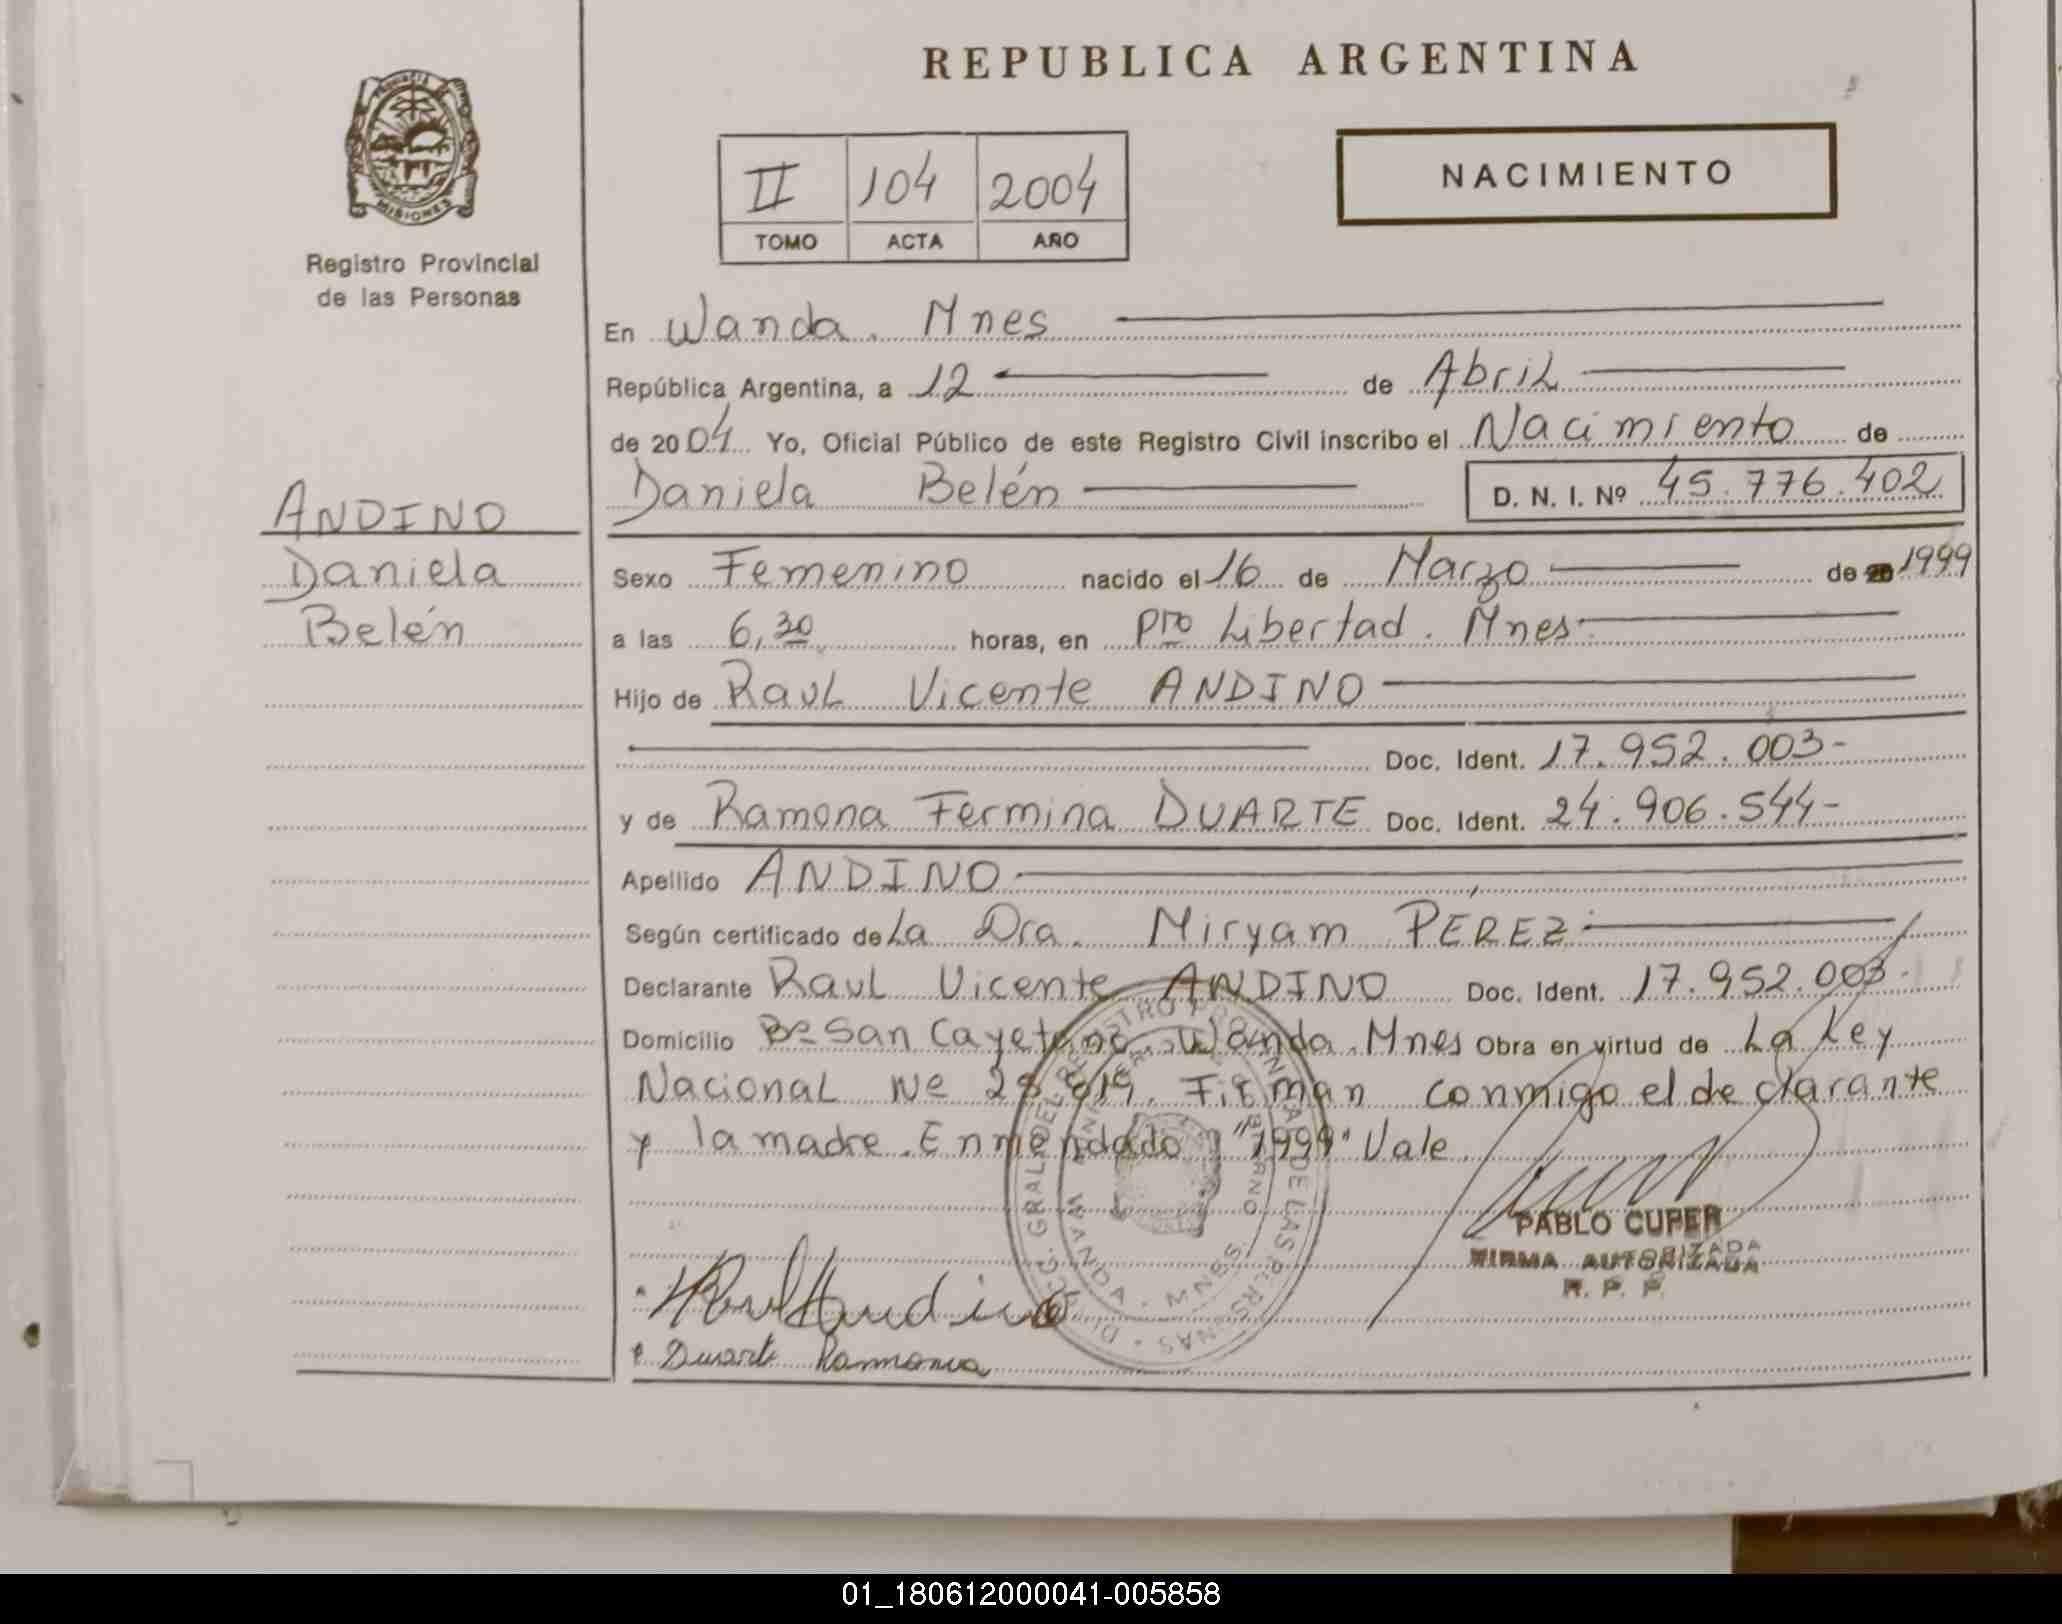 REPUBLICA ARGENTINA
PROVINCIA DE
MISIONES
Registro Provincial
de las Personas
II 104 2004
TOMO ACTA AÑO
NACIMIENTO
En Wanda. Mnes
República Argentina, a 12 de Abril
de 2004 Yo, Oficial Público de este Registro Civil inscribo el Nacimiento de
Daniela Belén D. N. I. Nº 45.776.402
ANDINO
Daniela
Belén
Sexo Femenino nacido el 16 de Marzo de 1999
a las 6,30 horas, en Pto Libertad. Mnes
Hijo de Raul Vicente ANDINO
Doc. Ident. 17.952.003-
y de Ramona Fermina DUARTE Doc. Ident. 24.906.544-
Apellido ANDINO
Según certificado de La Dra. Miryam PEREZ
Declarante Raul Vicente ANDINO Doc. Ident. 17.952.003-
Domicilio Bº San Cayetano. Wanda. Mnes Obra en virtud de La Ley
Nacional Nº 25.819. Firman conmigo el declarante
y la madre. Enmendado "1999" Vale
DIRECC. GRAL. DEL REGISTRO PROVINCIAL DE LAS PERSONAS
WANDA - MNES.
Raul Andino
Duarte Rammona
PABLO CUPER
FIRMA AUTORIZADA
R. P. P.
01_180612000041-005858